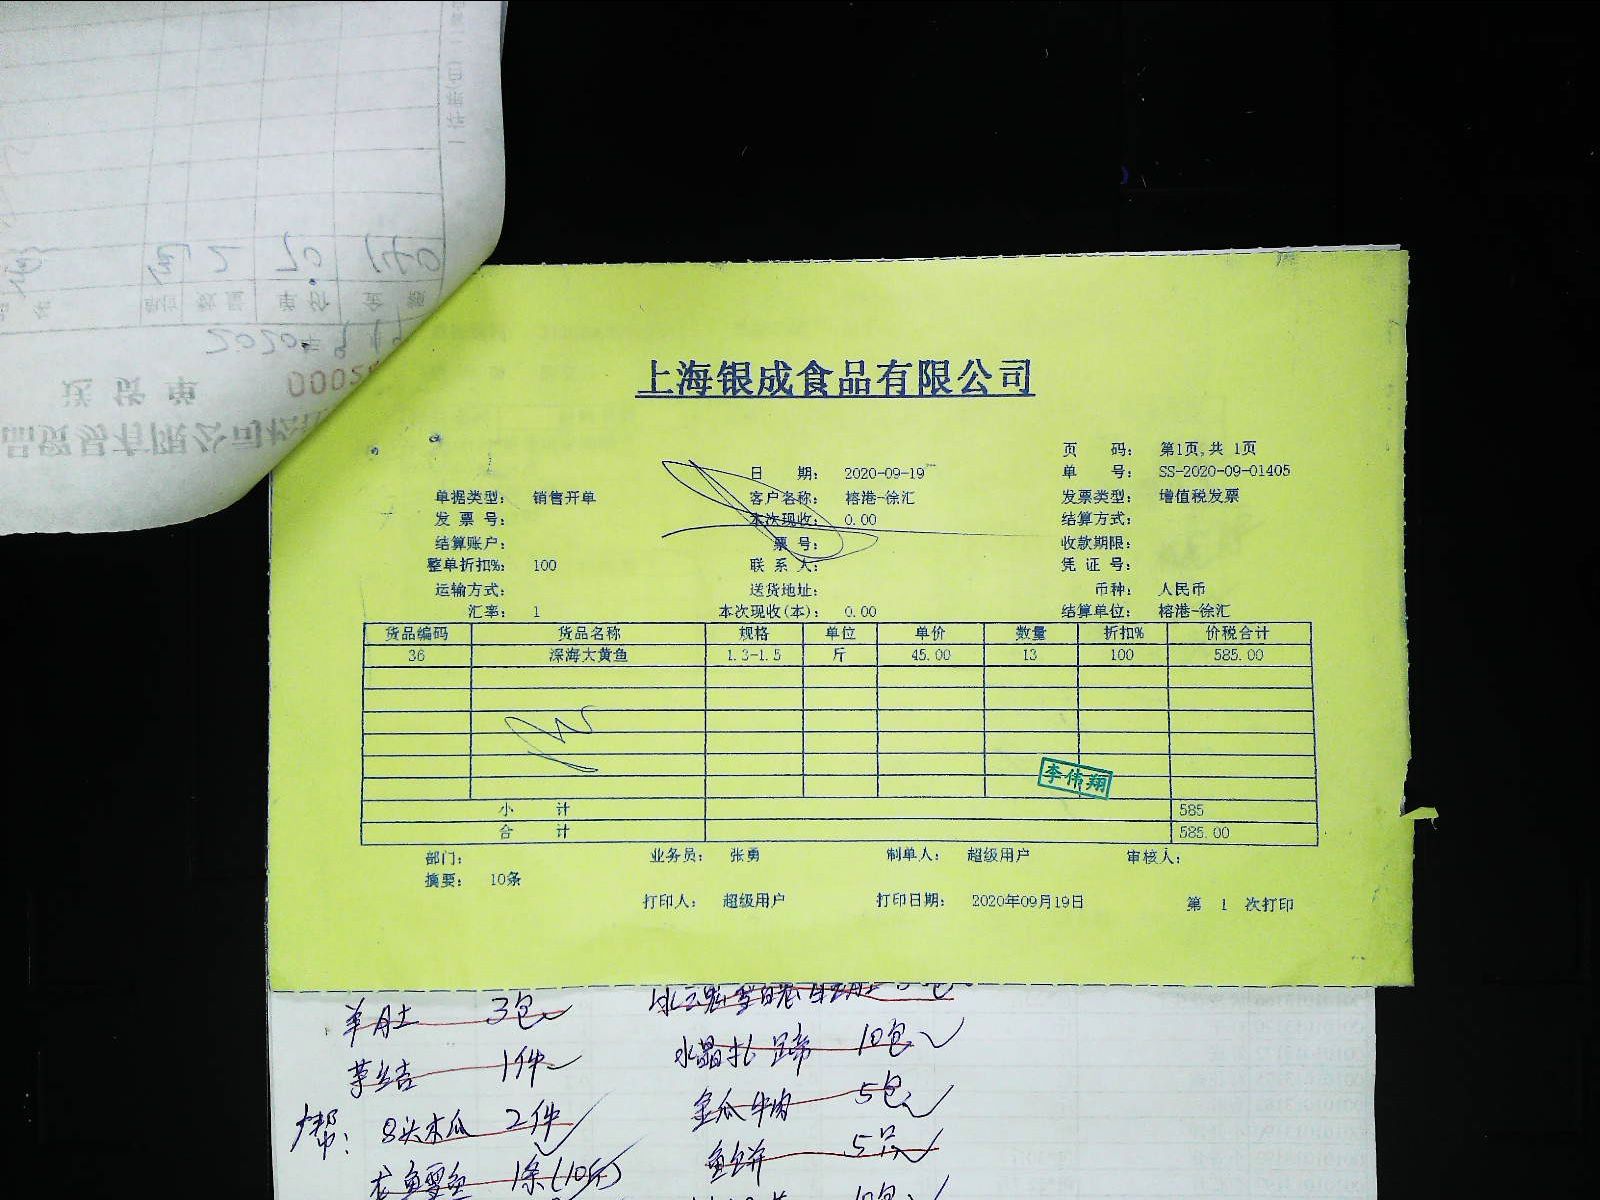 上海银成食品有限公司
页 码: 第1页,共 1页
日 期: 2020-09-19 单 号: SS-2020-09-01405
单据类型: 销售开单 客户名称: 榕港-徐汇 发票类型: 增值税发票
发 票 号: 本次现收: 0.00 结算方式:
结算账户: 票 号: 收款期限:
整单折扣%: 100 联 系 人: 凭 证 号:
运输方式: 送货地址: 币种: 人民币
汇率: 1 本次现收(本): 0.00 结算单位: 榕港-徐汇
货品编码 货品名称 规格 单位 单价 数量 折扣% 价税合计
36 深海大黄鱼 1.3-1.5 斤 45.00 13 100 585.00
李伟翔
小 计 585
合 计 585.00
部门: 业务员: 张勇 制单人: 超级用户 审核人:
摘要: 10条
打印人: 超级用户 打印日期: 2020年09月19日 第 1 次打印
送货单 0002
2020年9月19
数量 单价 金额
2 70 140
羊肚 3包
草结 1件
帮: 8头木瓜 2件
龙鱼雪鱼 1条(10斤)
水晶扎蹄 10包
金瓜牛肉 5包
鱼饼 5只
10包